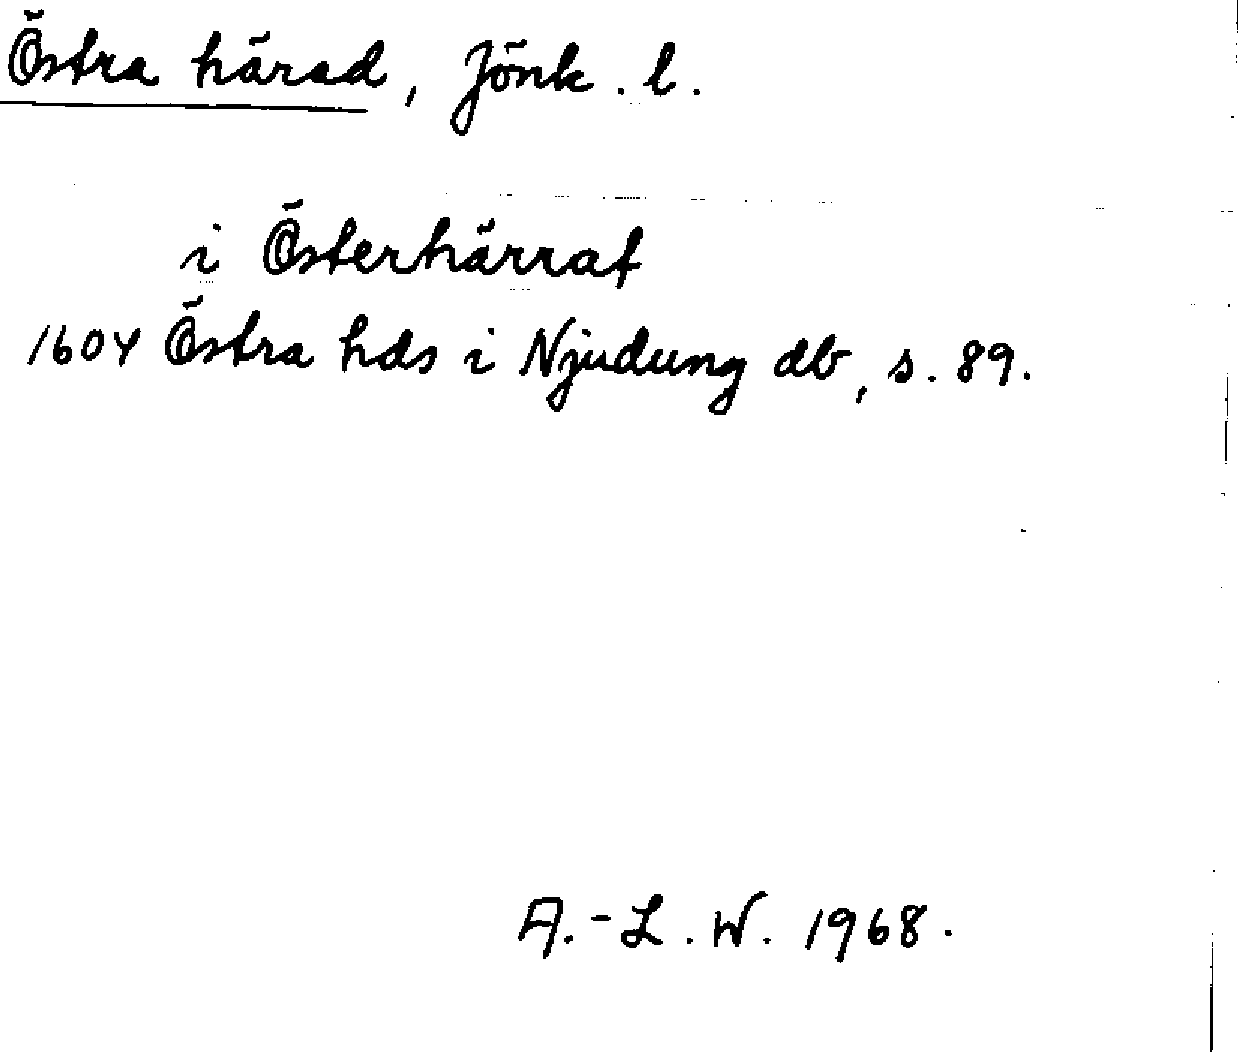 Östra härad, Jönk. l.
i Österhärrat
1604 Östra hds i Njudung db, s. 89.
A.-L. W. 1968.